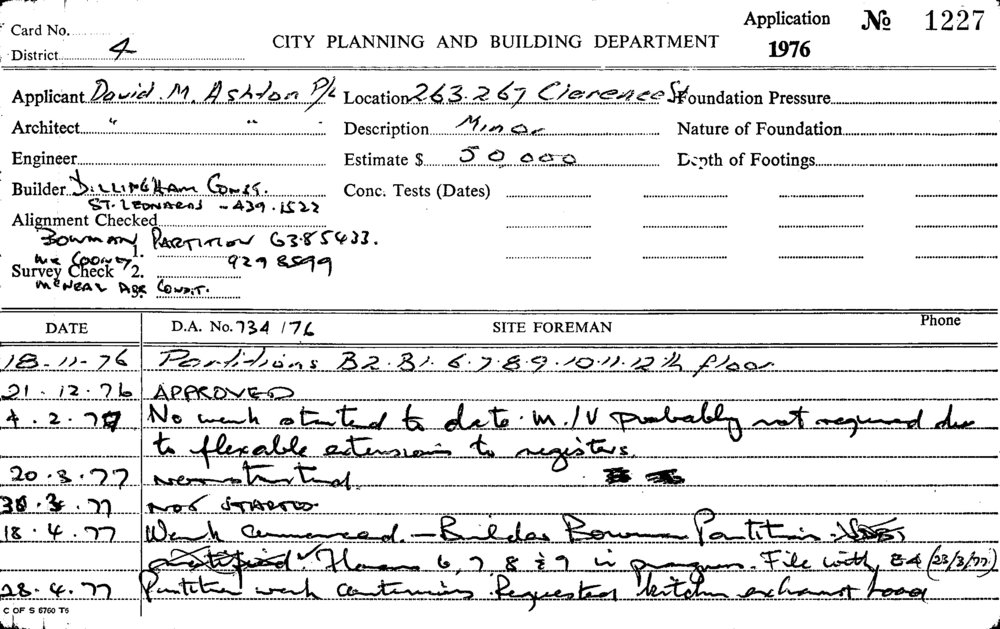 Card No.
District 4
CITY PLANNING AND BUILDING DEPARTMENT
Application № 1227
1976
Applicant David. M. Ashton P/L Location 263.267 Clarence St Foundation Pressure
Architect " " Description Minor Nature of Foundation
Engineer Estimate $ 50 000 Depth of Footings
Builder Dillingham Const. Conc. Tests (Dates)
ST. LEONARDS - 439.1522
Alignment Checked
BOWMAN PARTITION 6385433.
1. 9298599
Survey Check 2.
DATE D.A. No. 734 /76 SITE FOREMAN Phone
18-11-76 Partitions B2.B1.6.7.8.9.10.11.12th floor
21.12.76 APPROVED
4.2.77 No work started to date. M./V probably not required due
to flexable extensions to registers.
20.3.77
30.3.77 NOT STARTED
18.4.77 Work commenced. - Builder Bowman Partitions.
Floors 6, 7 8 & 9 in progress. File with (23/3/77.)
28.4.77 Partition work continuing. Requested kitchen exhaust hood
C OF S 6760 T5